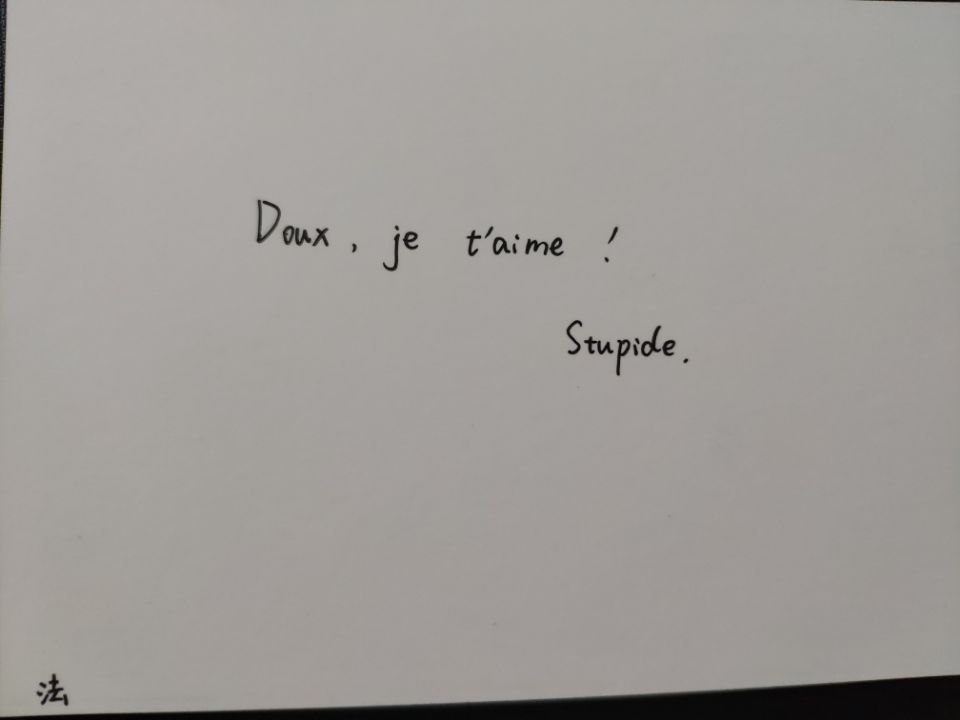 Doux, je t'aime !
Stupide.
法